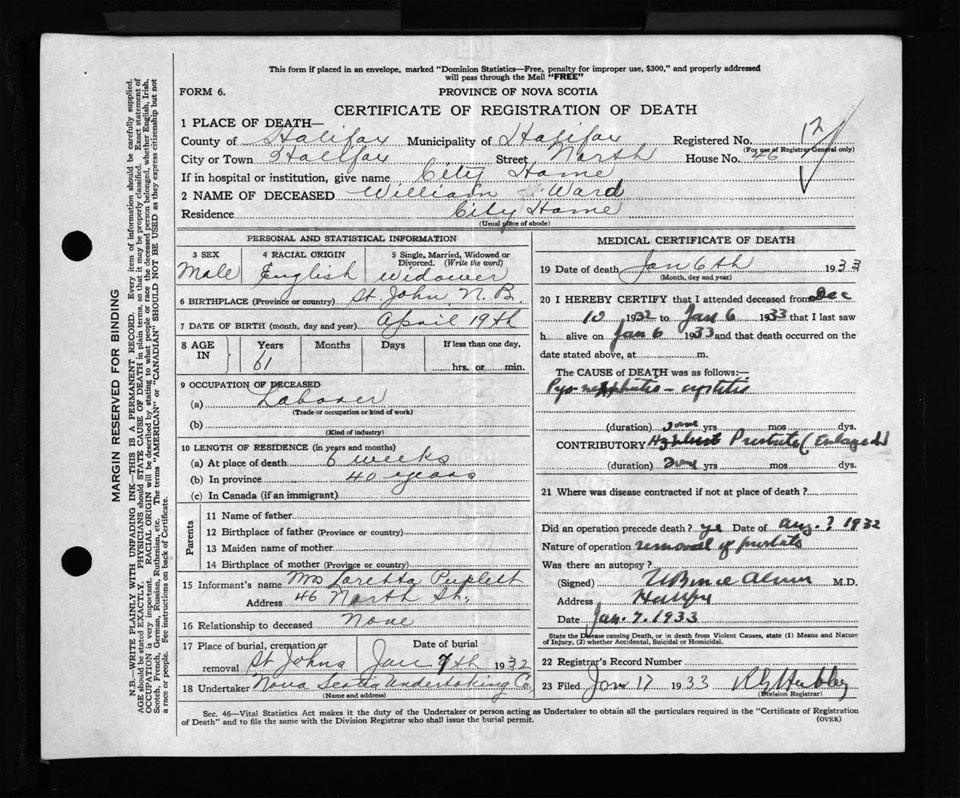 This form if placed in an envelope, marked "Dominion Statistics—Free, penalty for improper use, $300," and properly addressed
will pass through the Mail "FREE"
FORM 6.
PROVINCE OF NOVA SCOTIA
CERTIFICATE OF REGISTRATION OF DEATH
1 PLACE OF DEATH—
County of Halifax Municipality of Halifax Registered No. 12
(For use of Registrar General only)
City or Town Halifax Street North House No. 46
If in hospital or institution, give name City Home
2 NAME OF DECEASED William Ward
Residence City Home
(Usual place of abode)
PERSONAL AND STATISTICAL INFORMATION
3 SEX 4 RACIAL ORIGIN 5 Single, Married, Widowed or Divorced. (Write the word)
Male English widower
6 BIRTHPLACE (Province or country) St. John, N.B.
7 DATE OF BIRTH (month, day and year) April 19th
8 AGE IN Years Months Days If less than one day,
61 hrs. or min.
9 OCCUPATION OF DECEASED
(a) Laborer
(Trade or occupation or kind of work)
(b)
(Kind of industry)
10 LENGTH OF RESIDENCE (in years and months)
(a) At place of death 6 weeks
(b) In province 40 years
(c) In Canada (if an immigrant)
Parents
11 Name of father
12 Birthplace of father (Province or country)
13 Maiden name of mother
14 Birthplace of mother (Province or country)
15 Informant's name Mrs Loretta
Address 46 North St.
16 Relationship to deceased None
17 Place of burial, cremation or removal St Johns Date of burial Jan 7th 1932
18 Undertaker Nova Scotia Undertaking Co.
(Name and address)
MEDICAL CERTIFICATE OF DEATH
19 Date of death Jan 6th 1933
(Month, day and year)
20 I HEREBY CERTIFY that I attended deceased from Dec
10 1932 to Jan 6 1933 that I last saw
h alive on Jan 6 1933 and that death occurred on the
date stated above, at m.
The CAUSE of DEATH was as follows:—
Pyo nephritis - cystitis
(duration) yrs mos dys.
CONTRIBUTORY Prostate (Enlarged)
(duration) yrs mos dys.
21 Where was disease contracted if not at place of death?
Did an operation precede death? yes Date of Aug. ? 1932
Nature of operation removal of prostate
Was there an autopsy?
(Signed) M.D.
Address Halifax
Date Jan. 7. 1933
State the Disease causing Death, or in death from Violent Causes, state (1) Means and Nature
of Injury, (2) whether Accidental, Suicidal or Homicidal.
22 Registrar's Record Number
23 Filed Jan 17 1933
(Division Registrar)
Sec. 46—Vital Statistics Act makes it the duty of the Undertaker or person acting as Undertaker to obtain all the particulars required in the "Certificate of Registration
of Death" and to file the same with the Division Registrar who shall issue the burial permit.
(OVER)
MARGIN RESERVED FOR BINDING
N.B.—WRITE PLAINLY WITH UNFADING INK—THIS IS A PERMANENT RECORD. Every item of information should be carefully supplied.
AGE should be stated EXACTLY. PHYSICIANS should STATE CAUSE OF DEATH in plain terms, so that it may be properly classified. Exact statement of
OCCUPATION is very important. RACIAL ORIGIN will be described by stating to what people or race the deceased person belonged, whether English, Irish,
Scotch, French, German, Russian, Ruthenian, etc. The terms "AMERICAN" or "CANADIAN" SHOULD NOT BE USED as they express citizenship but not
a race or people. See instructions on back of Certificate.